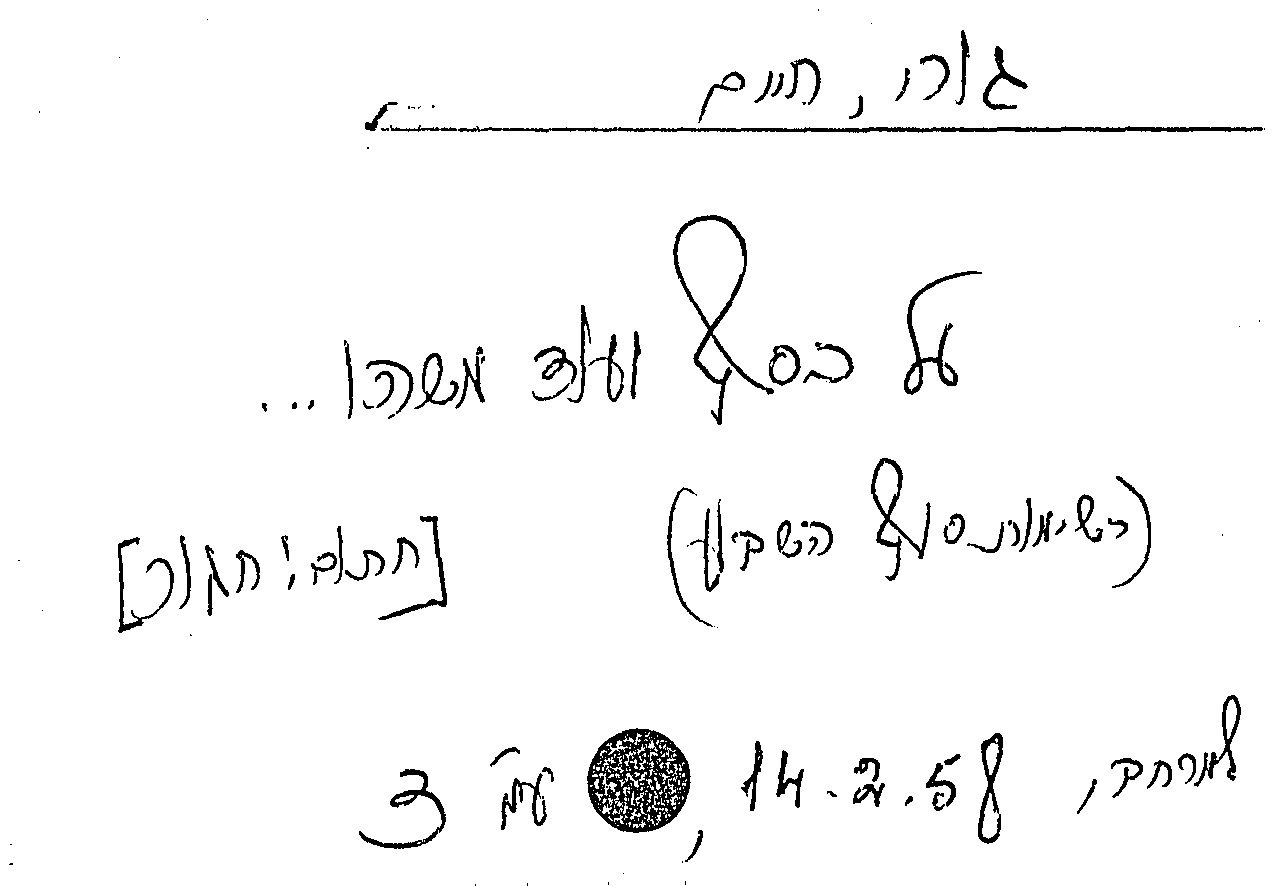 גורי, חיים
על כסף ועוד משהו...
(רשימות סוף השבוע) [חתום: חגור]
למרחב, 14.2.58, עמ' 3